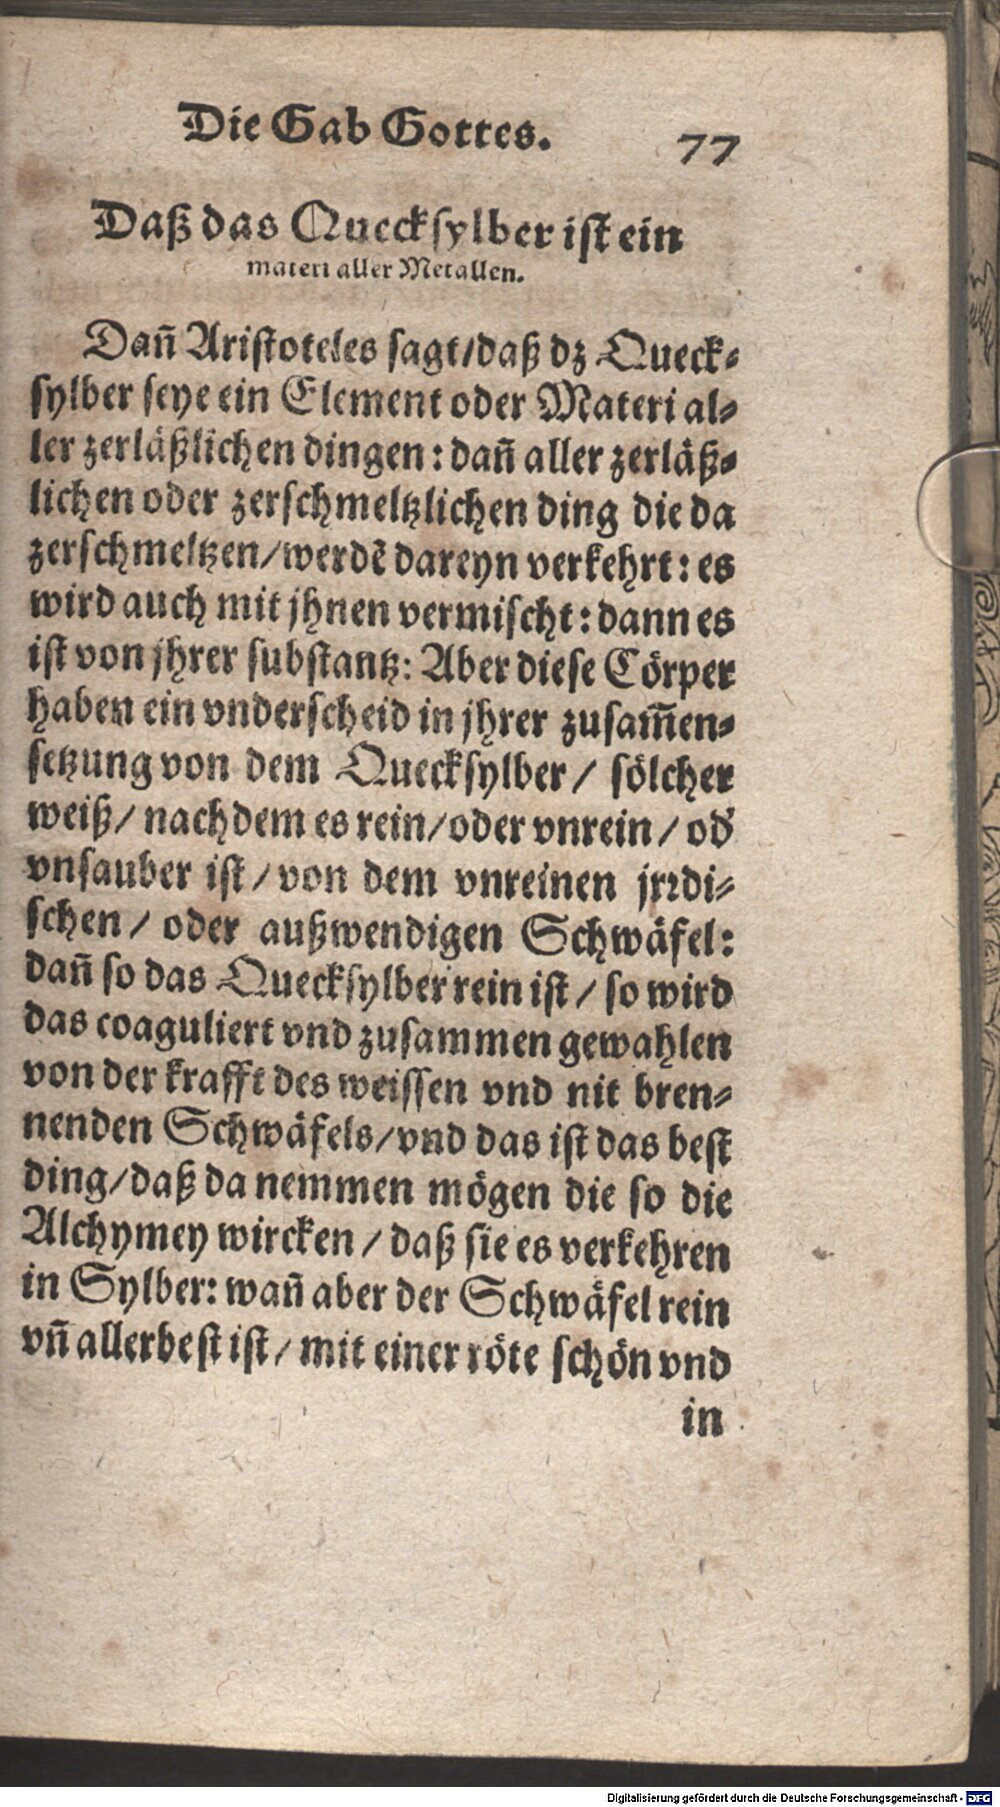 Die Gab Gottes. 77
Daß das Quecksylber ist ein
materi aller Metallen.
Dañ Aristoteles sagt/daß dz Queck-
sylber seye ein Element oder Materi al-
ler zerläßlichen dingen: dañ aller zerläß-
lichen oder zerschmeltzlichen ding die da
zerschmeltzen/werdẽ dareyn verkehrt: es
wird auch mit jhnen vermischt: dann es
ist von jhrer substantz: Aber diese Cörper
haben ein vnderscheid in jhrer zusam̃en-
setzung von dem Quecksylber / sölcher
weiß/ nachdem es rein/oder vnrein / od'
vnsauber ist / von dem vnreinen jrꝛdi-
schen / oder außwendigen Schwäfel:
dañ so das Quecksylber rein ist / so wird
das coaguliert vnd zusammen gewahlen
von der krafft des weissen vnd nit bren-
nenden Schwäfels/vnd das ist das best
ding/daß da nemmen mögen die so die
Alchymey wircken / daß sie es verkehren
in Sylber: wañ aber der Schwäfel rein
vñ allerbest ist / mit einer röte schön vnd
in
Digitalisierung gefördert durch die Deutsche Forschungsgemeinschaft - DFG